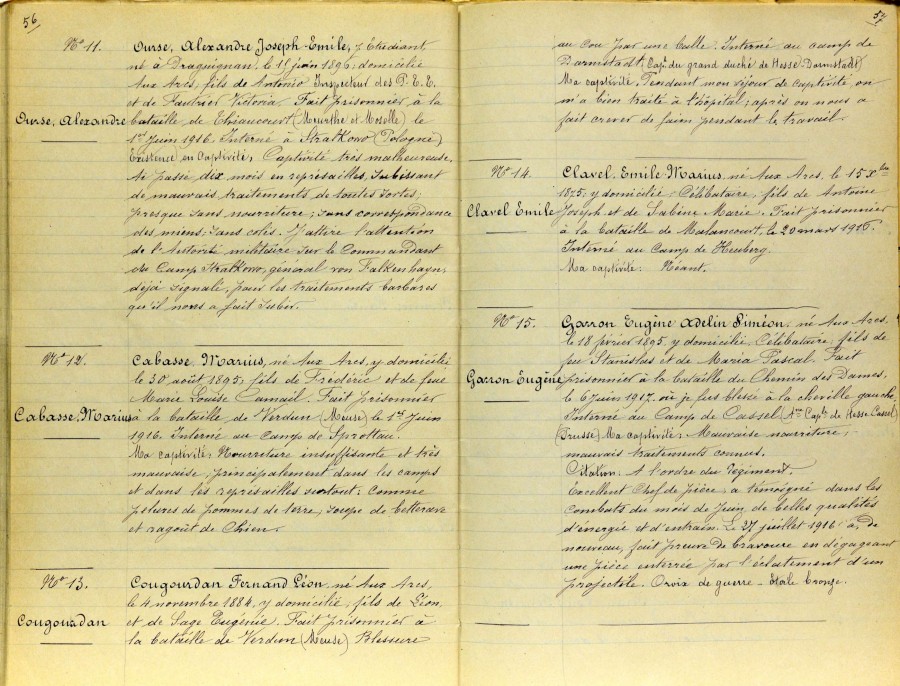 56
N° 11.
Ourse, Alexandre Joseph-Emile, Étudiant,
né à Draguignan, le 15 juin 1896; domicilié
Aux Arcs, fils de Antonio Inspecteur des P.E.E.
et de Victoria. Fait prisonnier à la
Ourse, Alexandre
bataille de Thiaucourt (Meurthe et Moselle) le
1er Juin 1916. Interné à Stralkowo (Pologne)
Existence en Captivité; Captivité très malheureuse.
Ai passé dix mois en représailles, subissant
de mauvais traitements de toutes sortes;
presque sans nourriture; sans correspondance
des miens; sans colis. J'attire l'attention
de l'Autorité militaire sur le Commandant
du Camp Stralkowo, général von Falkenhayn,
déjà signalé, pour les traitements barbares
qu'il nous a fait subir.
N° 12.
Cabasse Marius, né Aux Arcs, y domicilié
le 30 août 1895; fils de Frédéric et de feue
Marie Louise Camail. Fait prisonnier
Cabasse Marius
à la bataille de Verdun (Meuse) le 1er Juin
1916. Interné au Camp de Sprottau.
Ma captivité: Nourriture insuffisante et très
mauvaise; principalement dans les camps
et dans les représailles surtout: Comme
pelures de pommes de terre, soupe de betterave
et ragoût de Chien.
N° 13.
Cougourdan Fernand Léon, né Aux Arcs,
le 4 novembre 1884, y domicilié, fils de Léon
Cougourdan
et de Sage Eugénie. Fait prisonnier à
la bataille de Verdun (Meuse) Blessure
57
au Cou par une balle. Interné au camp de
Darmstadt (Cap. du grand duché de Hesse-Darmstadt)
Ma captivité. Pendant mon séjour de captivité on
m'a bien traité à l'hôpital; après on nous a
fait crever de faim pendant le travail.
N° 14.
Clavel Emile Marius, né Aux Arcs, le 15 Xbre
1875; y domicilié; Célibataire, fils de Antoine
Clavel Emile
Joseph et de Sabine Marie. Fait prisonnier
à la bataille de Malancourt, le 20 mars 1916.
Interné au Camp de Heuberg.
Ma captivité: Néant.
N° 15.
Garron Eugène Adelin Siméon, né Aux Arcs,
le 18 février 1895, y domicilié. Célibataire; fils de
feu Stanislas et de Maria Pascal. Fait
Garron Eugène
prisonnier à la bataille du Chemin des Dames,
le 6 Juin 1917, où je fus blessé à la cheville gauche.
Interné au Camp de Cassel (Anc. Cap. de Hesse-Cassel)
(Prusse) Ma captivité: Mauvaise nourriture;
mauvais traitements connus.
Citation: A l'ordre du Régiment.
Excellent Chef de pièce; a témoigné dans les
Combats du mois de Juin de belles qualités
d'énergie et d'entrain. Le 27 juillet 1916 a, de
nouveau, fait preuve de bravoure en dégageant
une pièce enterrée par l'éclatement d'un
projectile. Croix de guerre - Étoile bronze.